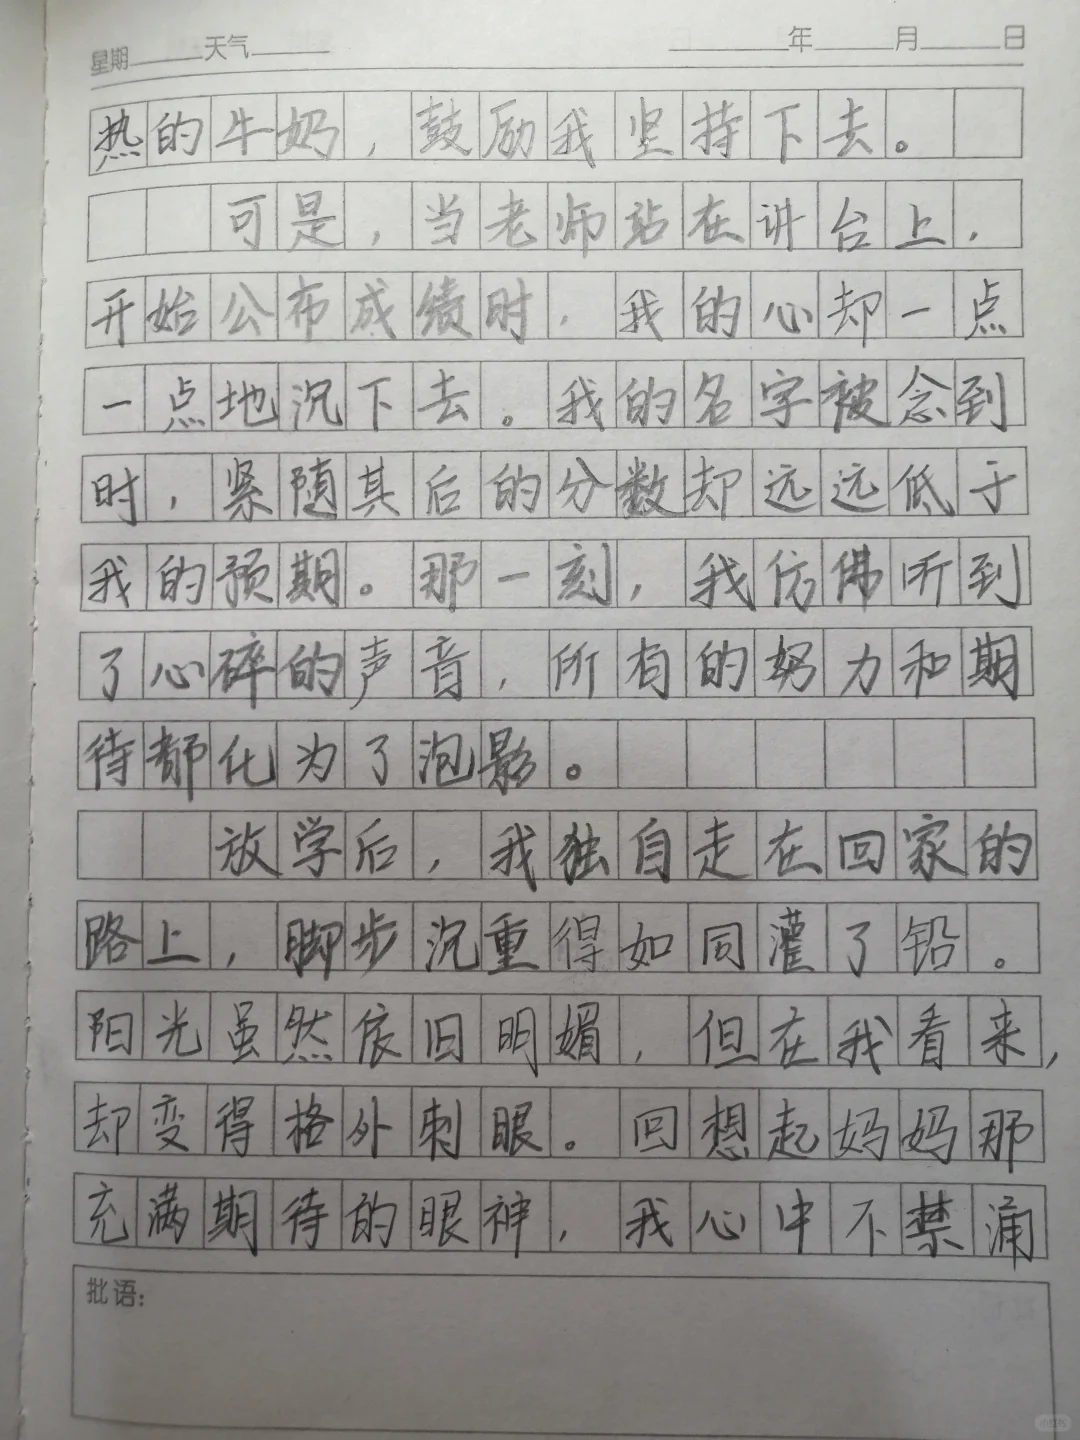 星期______天气______ ______年______月______日
热的牛奶，鼓励我坚持下去。
可是，当老师站在讲台上，
开始公布成绩时，我的心却一点
一点地沉下去。我的名字被念到
时，紧随其后的分数却远远低于
我的预期。那一刻，我仿佛听到
了心碎的声音，所有的努力和期
待都化为了泡影。
放学后，我独自走在回家的
路上，脚步沉重得如同灌了铅。
阳光虽然依旧明媚，但在我看来，
却变得格外刺眼。回想起妈妈那
充满期待的眼神，我心中不禁涌
批语：
小红书